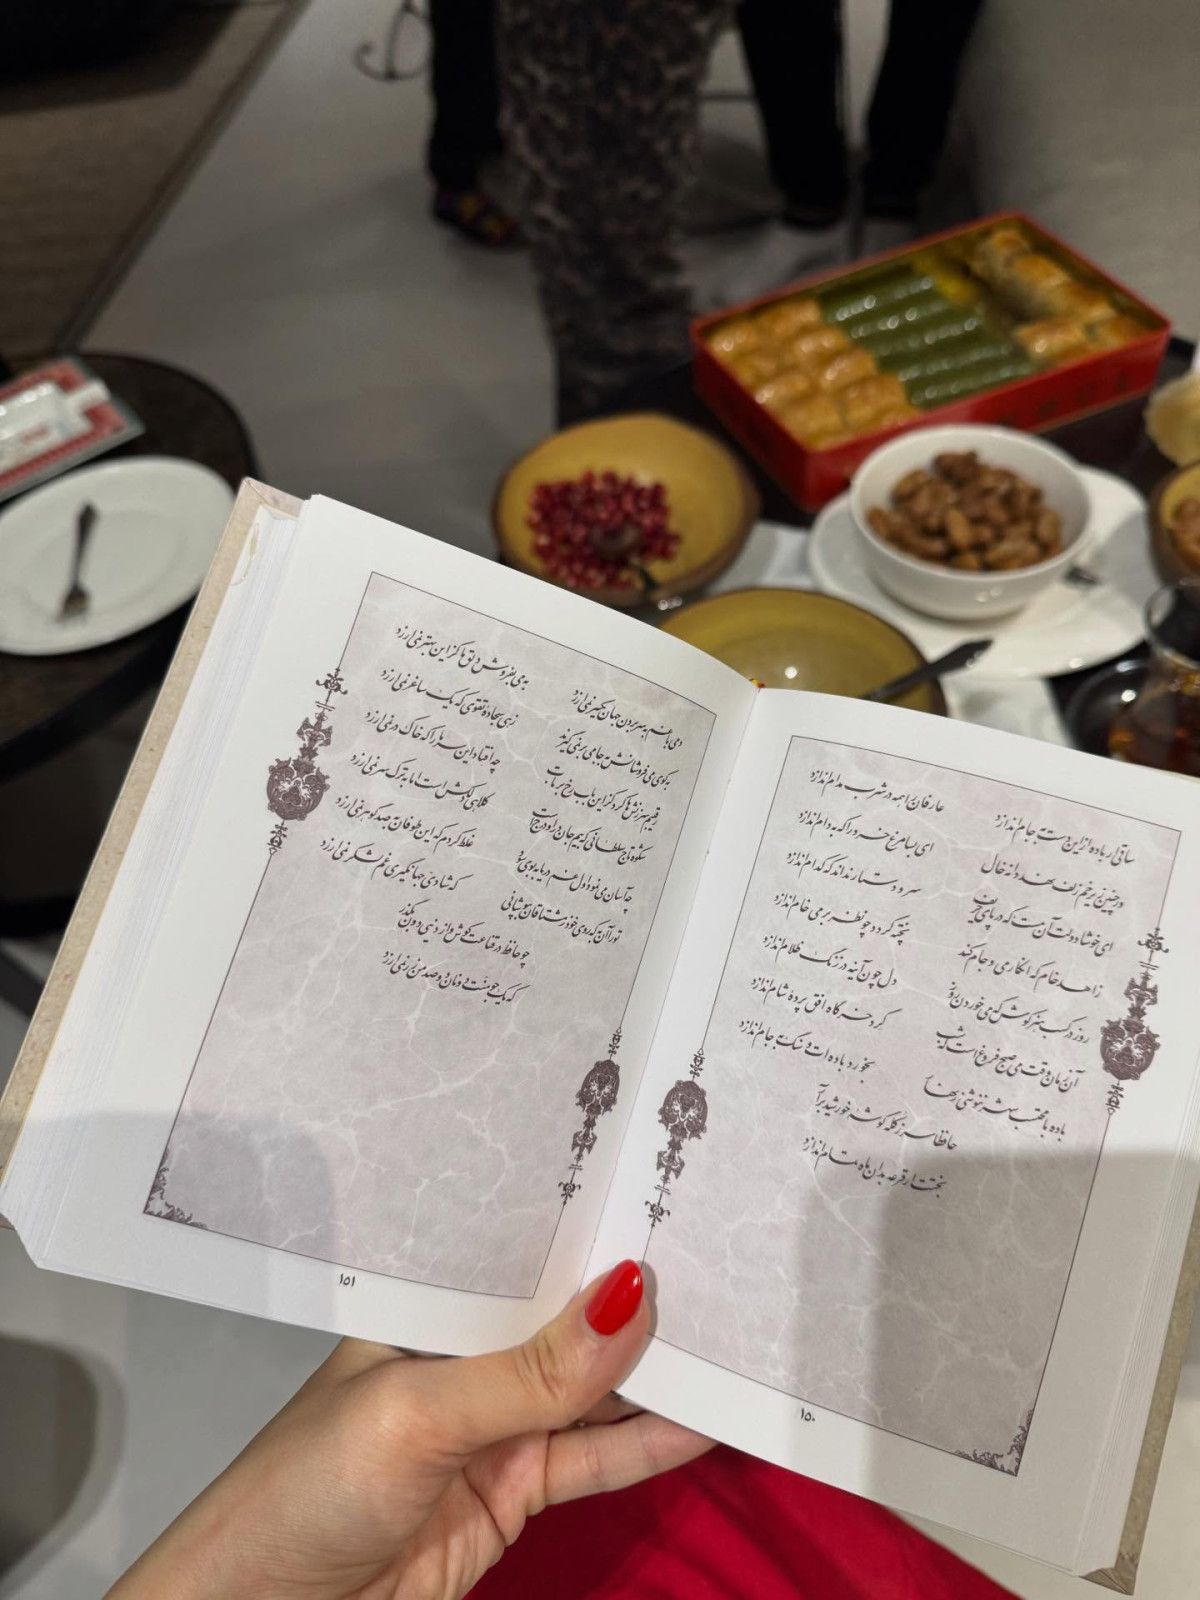 ساقی ار باده از این دست به جام اندازد
عارفان را همه در شرب مدام اندازد
ور چنین زیر خم زلف نهد دانه خال
ای بسا مرغ خرد را که به دام اندازد
ای خوشا دولت آن مست که در پای حریف
سر و دستار نداند که کدام اندازد
زاهد خام که انکار می و جام کند
پخته گردد چو نظر بر می خام اندازد
روز در کسب هنر کوش که می خوردن روز
دل چون آینه در زنگ ظلام اندازد
آن زمان وقت می صبح فروغ است که شب
گرد خرگاه افق پردهٔ شام اندازد
باده با محتسب شهر ننوشی زنهار
بخورد باده‌ات و سنگ به جام اندازد
حافظا سر ز کُله گوشهٔ خورشید برآر
بختت ار قرعه بدان ماه تمام اندازد
۱۵۰
دمی با غم به سر بردن جهان یکسر نمی‌ارزد
به می بفروش دلق ما کز این بهتر نمی‌ارزد
به کوی می فروشانش به جامی بر نمی‌گیرند
زهی سجاده تقوی که یک ساغر نمی‌ارزد
رقیبم سرزنش‌ها کرد کز این باب رخ برتاب
چه افتاد این سر ما را که خاک در نمی‌ارزد
شکوه تاج سلطانی که بیم جان در او درج است
کلاهی دلکش است اما به ترک سر نمی‌ارزد
چه آسان می‌نمود اول غم دریا به بوی سود
غلط کردم که این طوفان به صد گوهر نمی‌ارزد
تو را آن به که روی خود ز مشتاقان بپوشانی
که شادی جهانگیری غم لشکر نمی‌ارزد
چو حافظ در قناعت کوش و از دنیی دون بگذر
که یک جو منت دونان دو صد من زر نمی‌ارزد
۱۵۱